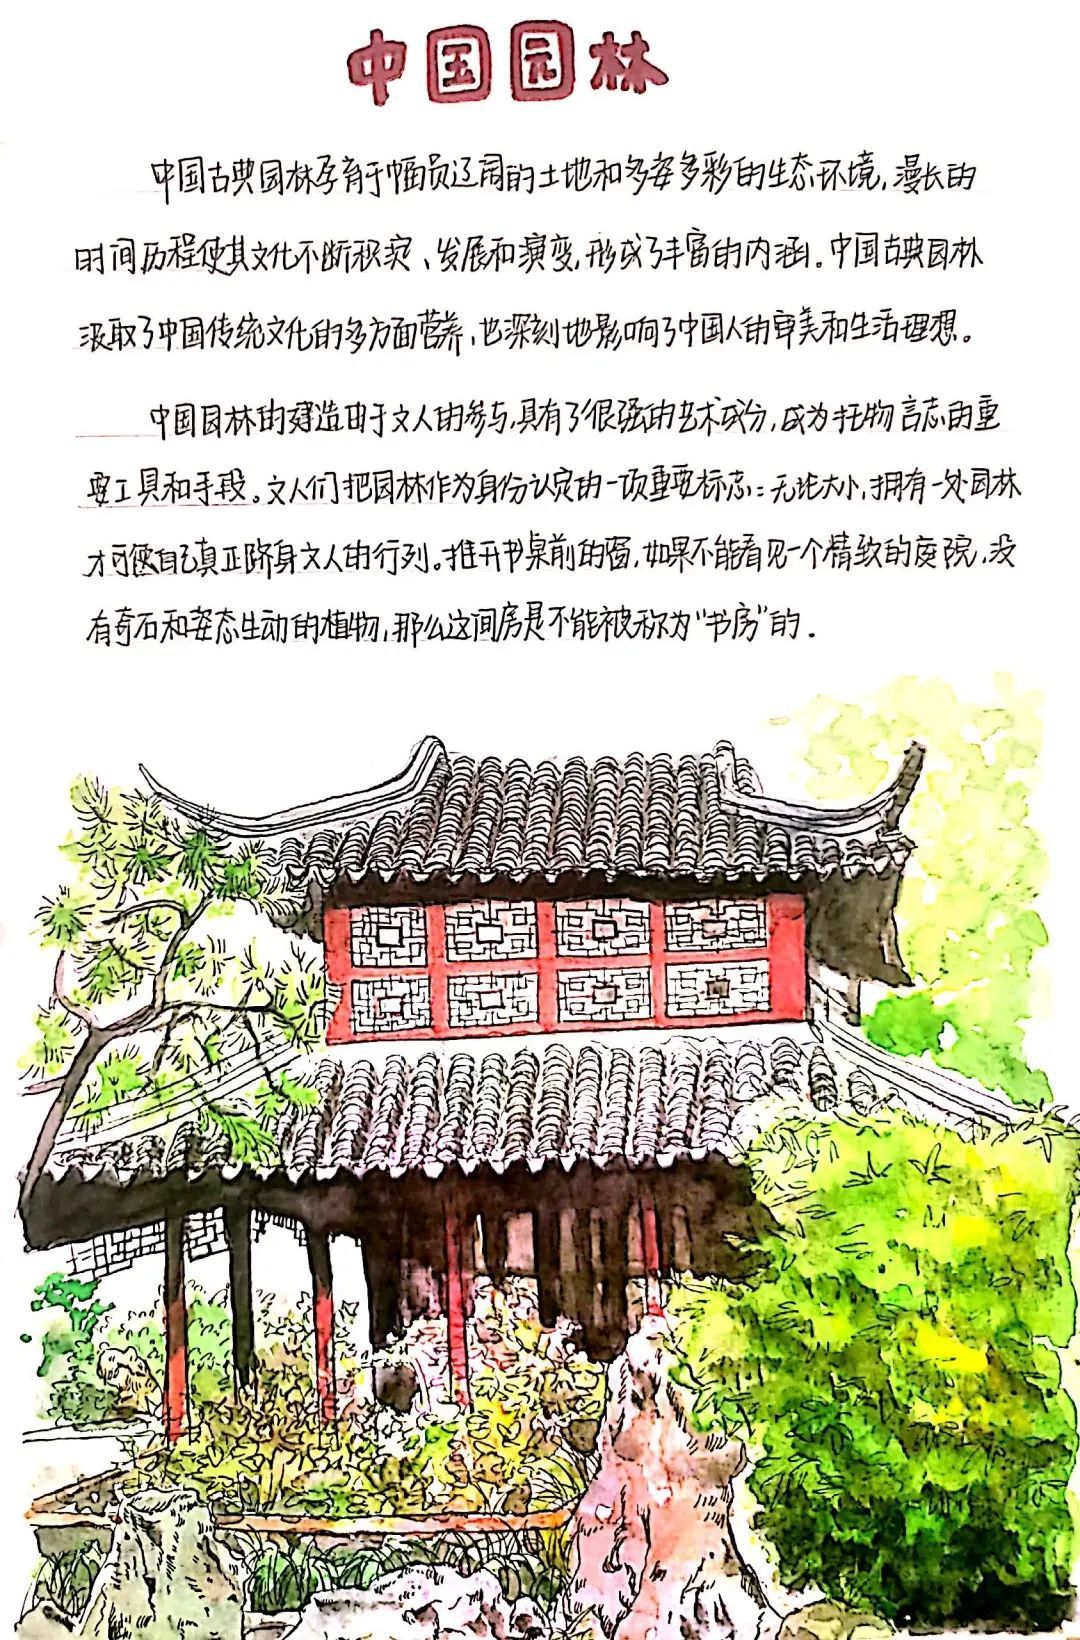 中国园林
中国古典园林孕育于幅员辽阔的土地和多姿多彩的生态环境,漫长的
时间历程使其文化不断积淀、发展和演变,形成了丰富的内涵。中国古典园林
汲取了中国传统文化的多方面营养,也深刻地影响了中国人的审美和生活理想。
中国园林的建造由于文人的参与,具有了很强的艺术成分,成为托物言志的重
要工具和手段。文人们把园林作为身份认定的一项重要标志:无论大小,拥有一处园林
才可使自己真正跻身文人的行列。推开书桌前的窗,如果不能看见一个精致的庭院,没
有奇石和姿态生动的植物,那么这间房是不能被称为“书房”的.